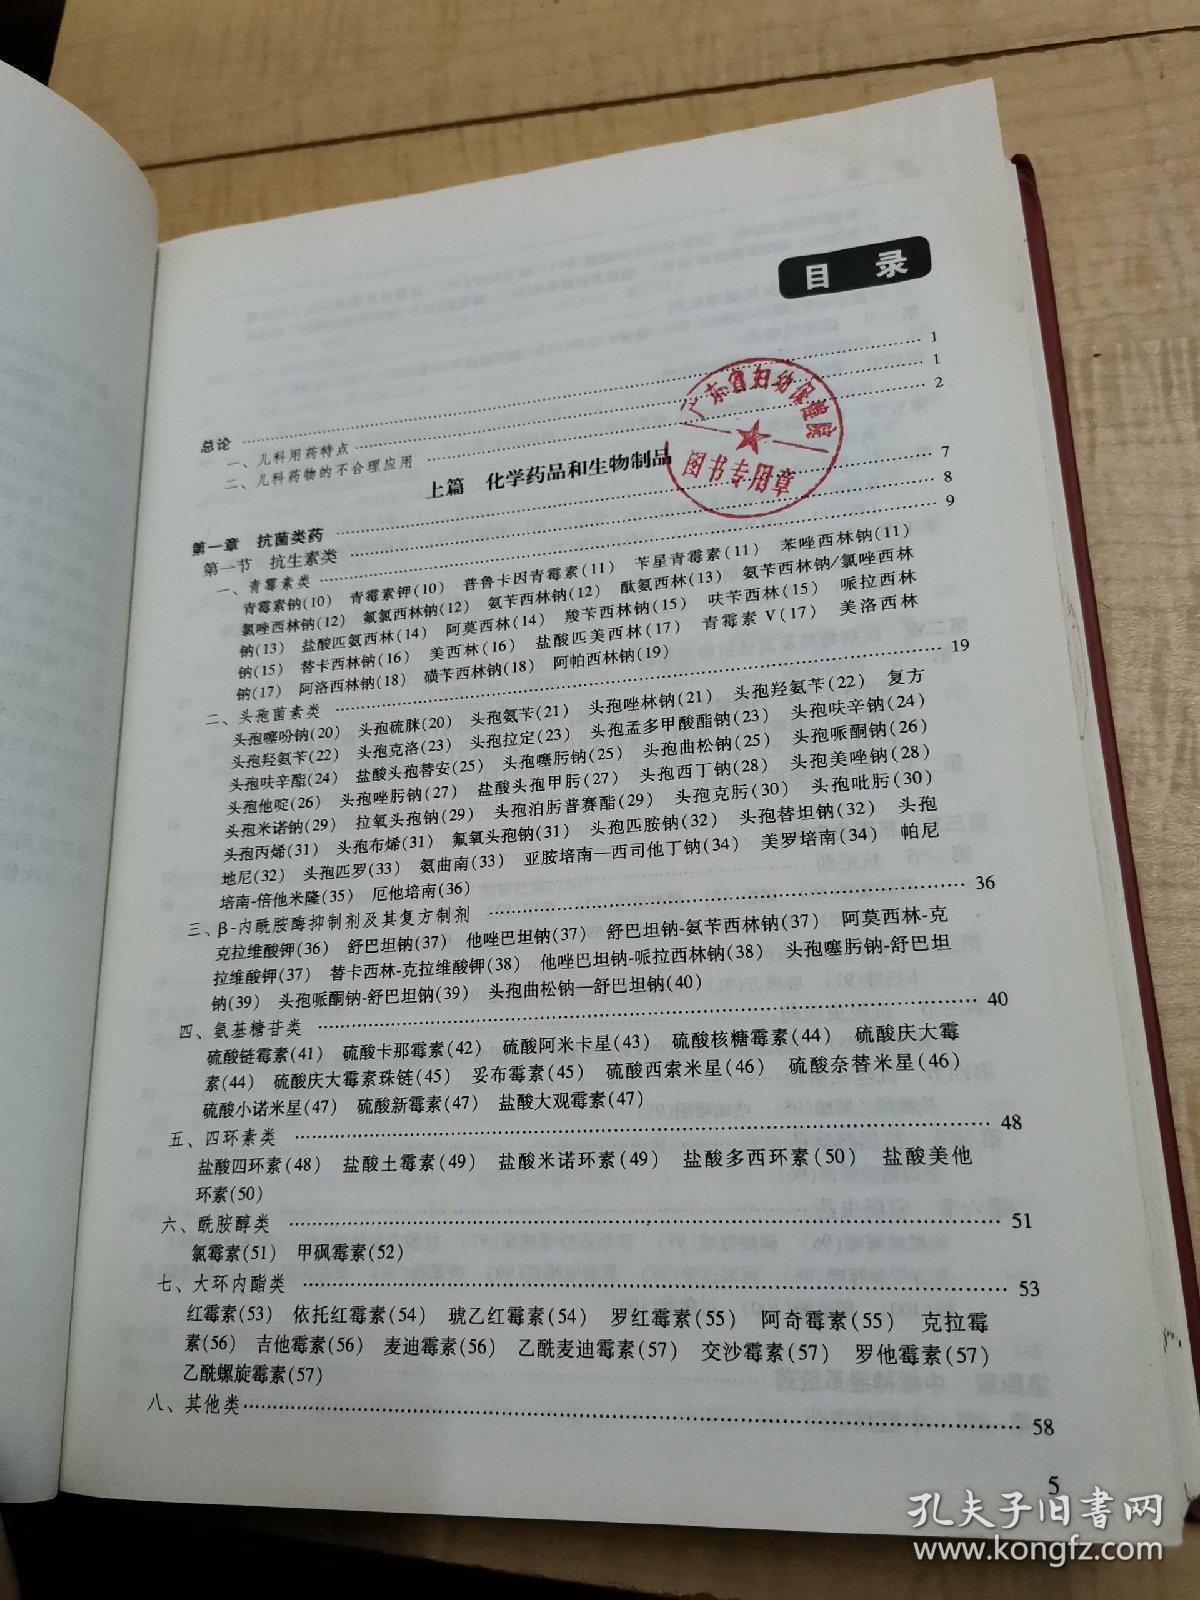 目 录
总论 1
一、儿科用药特点 1
二、儿科药物的不合理应用 2
广东省妇幼保健院
图书专用章
上篇 化学药品和生物制品
第一章 抗菌类药 7
第一节 抗生素类 8
一、青霉素类 9
青霉素钠(10) 青霉素钾(10) 普鲁卡因青霉素(11) 苄星青霉素(11) 苯唑西林钠(11)
氯唑西林钠(12) 氟氯西林钠(12) 氨苄西林钠(12) 酞氨西林(13) 氨苄西林钠/氯唑西林
钠(13) 盐酸匹氨西林(14) 阿莫西林(14) 羧苄西林钠(15) 呋苄西林(15) 哌拉西林
钠(15) 替卡西林钠(16) 美西林(16) 盐酸匹美西林(17) 青霉素 V(17) 美洛西林
钠(17) 阿洛西林钠(18) 磺苄西林钠(18) 阿帕西林钠(19)
二、头孢菌素类 19
头孢噻吩钠(20) 头孢硫脒(20) 头孢氨苄(21) 头孢唑林钠(21) 头孢羟氨苄(22) 复方
头孢羟氨苄(22) 头孢克洛(23) 头孢拉定(23) 头孢孟多甲酸酯钠(23) 头孢呋辛钠(24)
头孢呋辛酯(24) 盐酸头孢替安(25) 头孢噻肟钠(25) 头孢曲松钠(25) 头孢哌酮钠(26)
头孢他啶(26) 头孢唑肟钠(27) 盐酸头孢甲肟(27) 头孢西丁钠(28) 头孢美唑钠(28)
头孢米诺钠(29) 拉氧头孢钠(29) 头孢泊肟普赛酯(29) 头孢克肟(30) 头孢吡肟(30)
头孢丙烯(31) 头孢布烯(31) 氟氧头孢钠(31) 头孢匹胺钠(32) 头孢替坦钠(32) 头孢
地尼(32) 头孢匹罗(33) 氨曲南(33) 亚胺培南—西司他丁钠(34) 美罗培南(34) 帕尼
培南-倍他米隆(35) 厄他培南(36)
三、β-内酰胺酶抑制剂及其复方制剂 36
克拉维酸钾(36) 舒巴坦钠(37) 他唑巴坦钠(37) 舒巴坦钠-氨苄西林钠(37) 阿莫西林-克
拉维酸钾(37) 替卡西林-克拉维酸钾(38) 他唑巴坦钠-哌拉西林钠(38) 头孢噻肟钠-舒巴坦
钠(39) 头孢哌酮钠-舒巴坦钠(39) 头孢曲松钠—舒巴坦钠(40)
四、氨基糖苷类 40
硫酸链霉素(41) 硫酸卡那霉素(42) 硫酸阿米卡星(43) 硫酸核糖霉素(44) 硫酸庆大霉
素(44) 硫酸庆大霉素珠链(45) 妥布霉素(45) 硫酸西索米星(46) 硫酸奈替米星(46)
硫酸小诺米星(47) 硫酸新霉素(47) 盐酸大观霉素(47)
五、四环素类 48
盐酸四环素(48) 盐酸土霉素(49) 盐酸米诺环素(49) 盐酸多西环素(50) 盐酸美他
环素(50)
六、酰胺醇类 51
氯霉素(51) 甲砜霉素(52)
七、大环内酯类 53
红霉素(53) 依托红霉素(54) 琥乙红霉素(54) 罗红霉素(55) 阿奇霉素(55) 克拉霉
素(56) 吉他霉素(56) 麦迪霉素(56) 乙酰麦迪霉素(57) 交沙霉素(57) 罗他霉素(57)
乙酰螺旋霉素(57)
八、其他类 58
5
孔夫子旧书网
www.kongfz.com